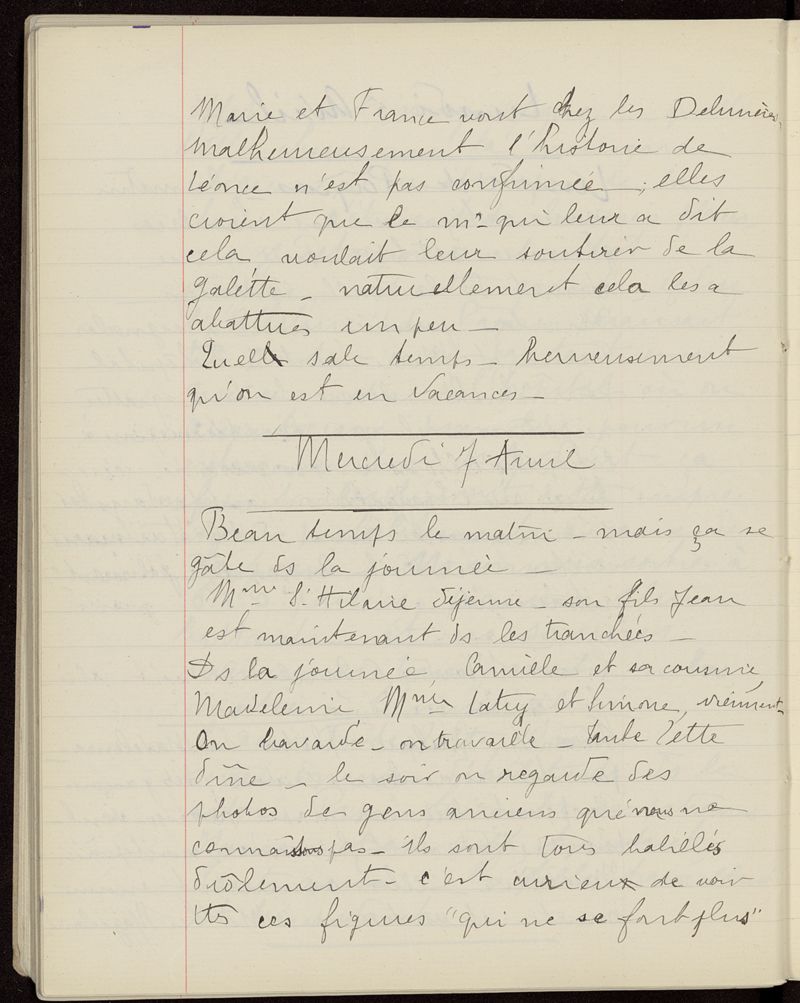 Marie et France vont chez les
malheureusement l'histoire de
Léonce n'est pas confirmée ; elles
croient que le mr qui leur a dit
cela voulait leur soutirer de la
galette _ naturellement cela les a
abattues un peu _
Quel sale temps _ heureusement
qu'on est en vacances _
Mercredi 7 Avril
Beau temps le matin _ mais ça se
gâte ds la journée _
Mme St Hilaire déjeune _ son fils Jean
est maintenant ds les tranchées _
Ds la journée, Camille et sa cousine,
Madeleine Mme Latry et Simone, viennent _
On bavarde _ on travaille _ tante
dîne _ le soir on regarde des
photos de gens anciens que nous ne
connaissons pas _ ils sont tous habillés
drôlement _ c'est curieux de voir
ttes ces figures "qui ne se font plus"